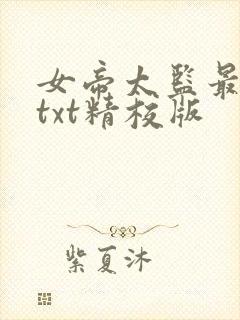 女帝太监最
txt精校版
紫夏沐